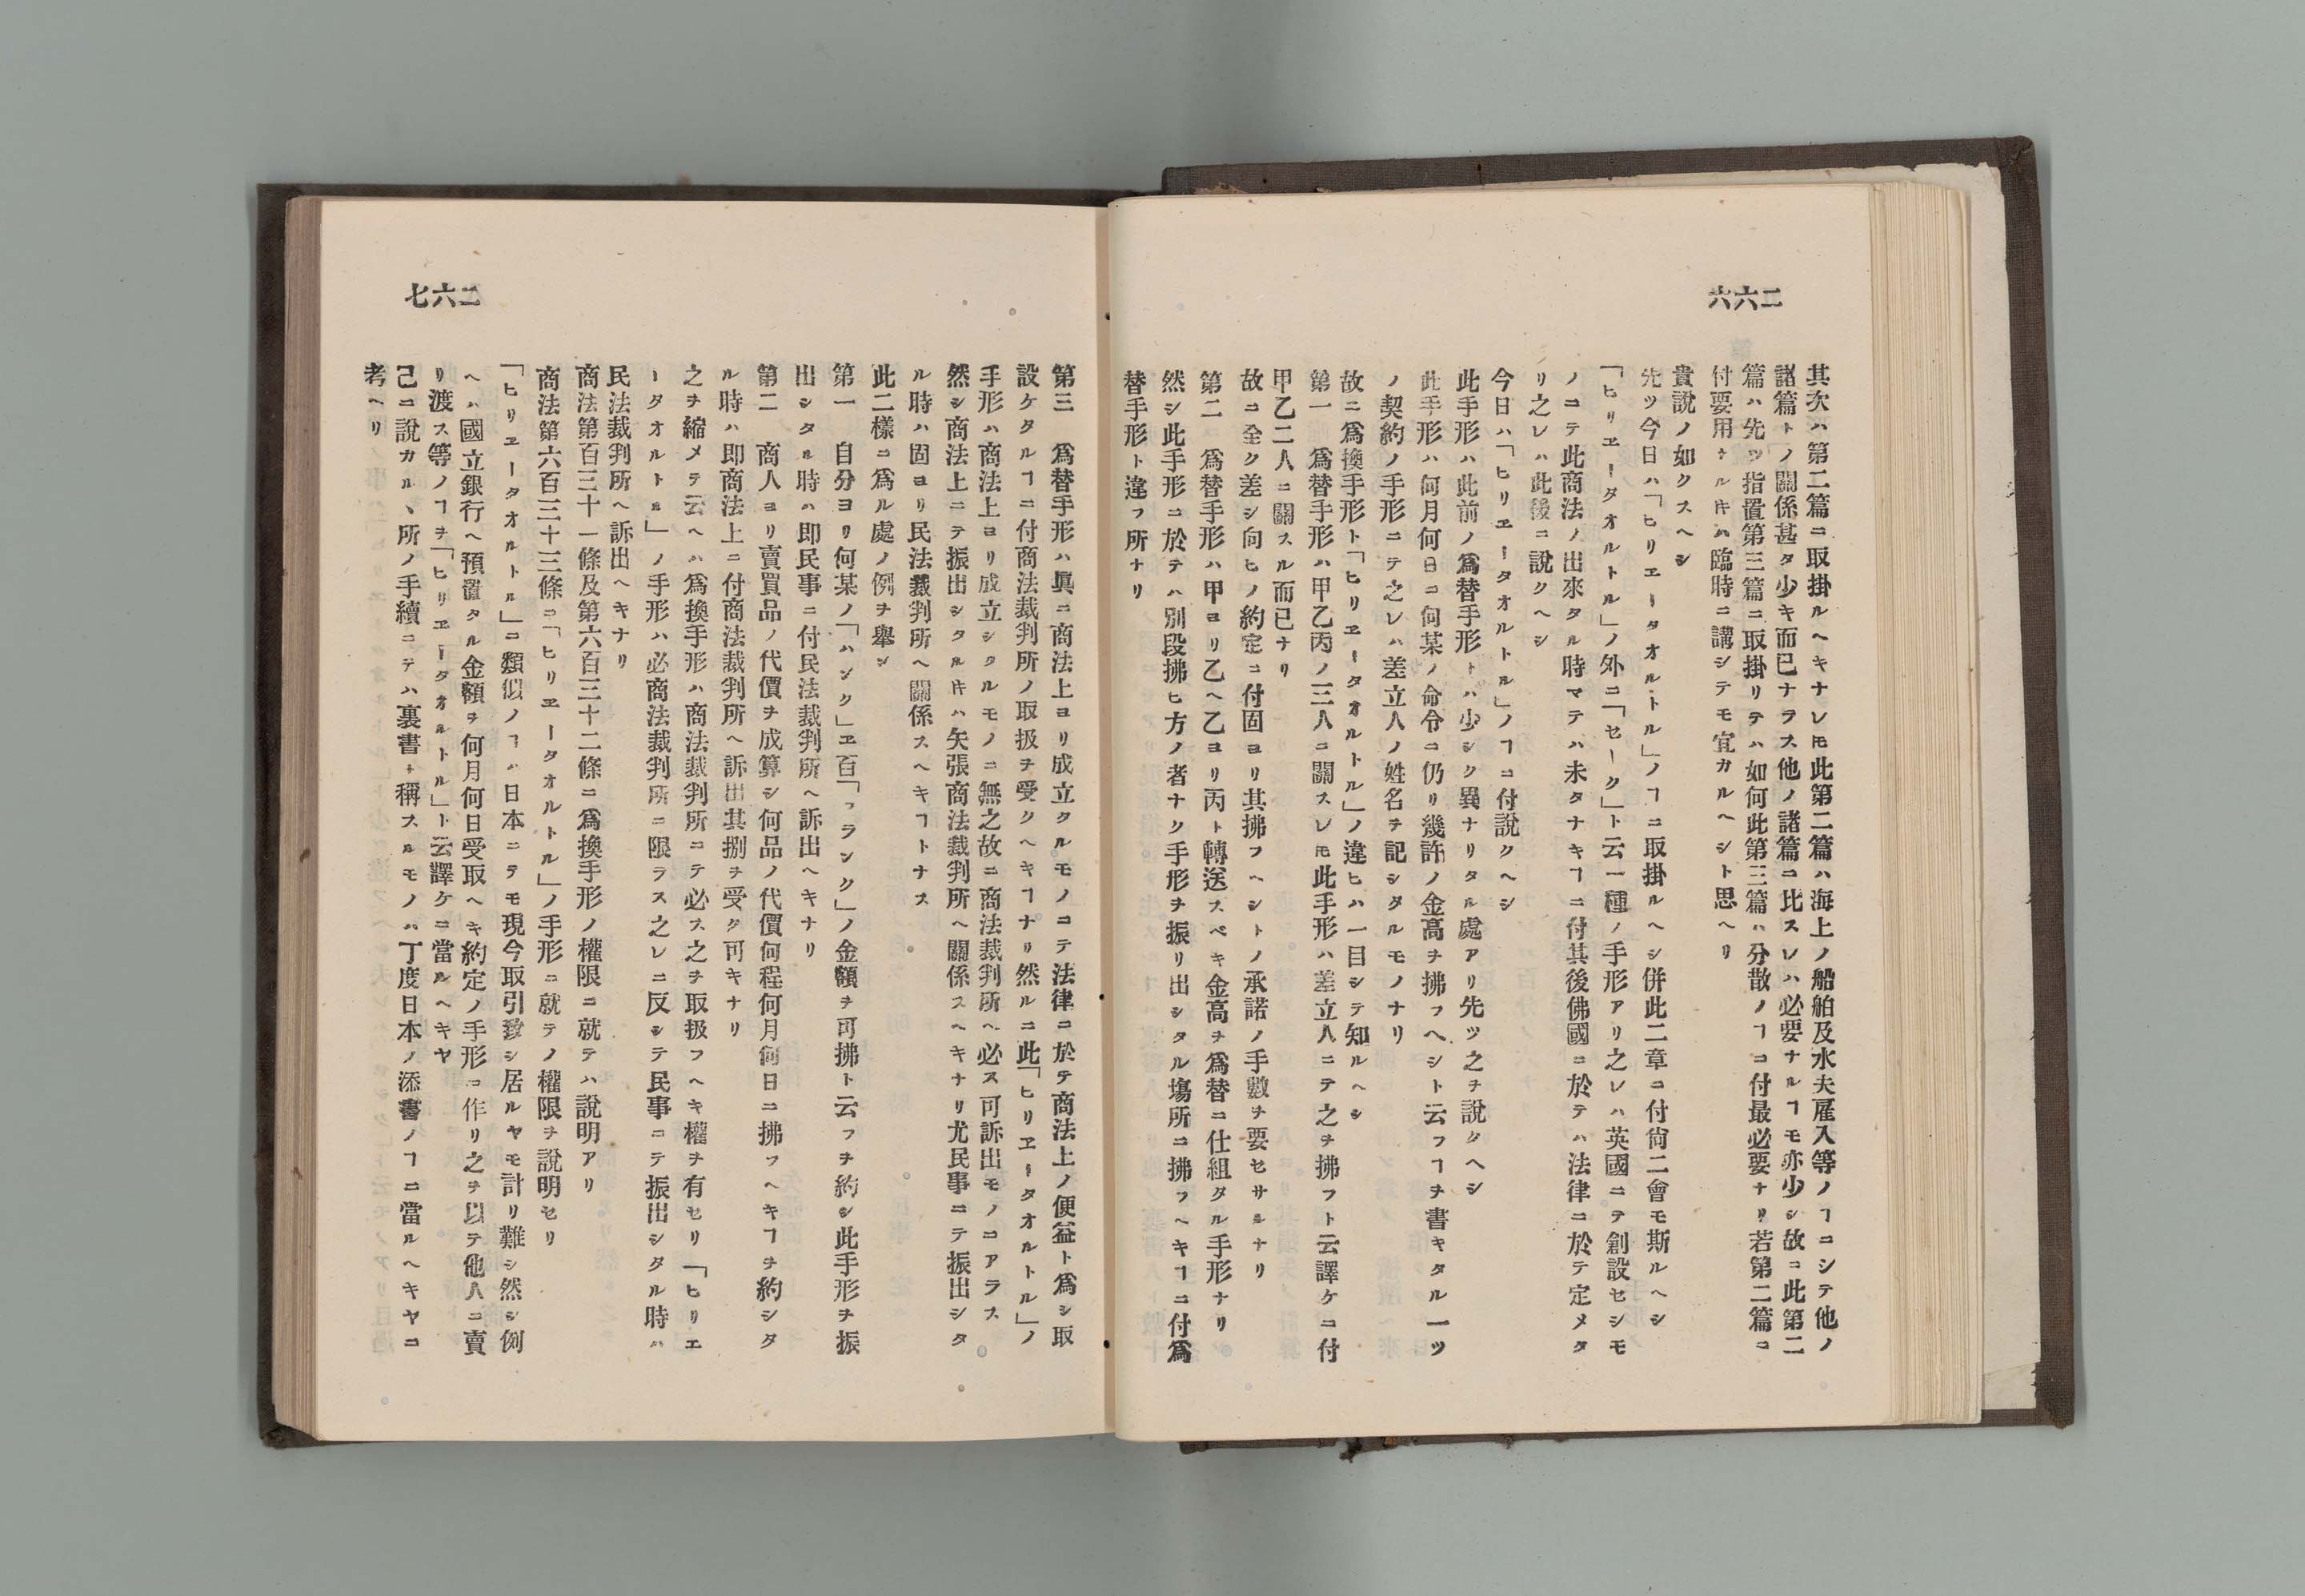 二六六
其次ハ第二篇ニ取掛ルヘキナレ𪜈此第二篇ハ海上ノ船舶及水夫雇入等ノヿニシテ他ノ
諸篇トノ關係甚タ少キ而已ナラス他ノ諸篇ニ比スレハ必要ナルヿモ亦少シ故ニ此第二
篇ハ先ツ指置第三篇ニ取掛リテハ如何此第三篇ハ分散ノヿニ付最必要ナリ若第二篇ニ
付要用ナル𪜈ハ臨時ニ講シテモ宜カルヘシト思ヘリ
貴說ノ如クスヘシ
先ツ今日ハ「ヒリエータオルトル」ノヿニ取掛ルヘシ併此二章ニ付尙二會モ斯ルヘシ
「ヒリヱータオルトル」ノ外ニ「セーク」ト云一種ノ手形アリ之レハ英國ニテ創設セシモ
ノニテ此商法ノ出來タル時マテハ未タナキヿニ付其後佛國ニ於テハ法律ニ於テ定メタ
リ之レハ此後ニ說クヘシ
今日ハ「ヒリヱータオルトル」ノヿニ付說クヘシ
此手形ハ此前ノ爲替手形トハ少シク異ナリタル處アリ先ツ之ヲ說クヘシ
此手形ハ何月何日ニ何某ノ命令ニ仍リ幾許ノ金高ヲ拂フヘシト云フヿヲ書キタル一ツ
ノ契約ノ手形ニテ之レハ差立人ノ姓名ヲ記シタルモノナリ
故ニ爲換手形ト「ヒリヱータオルトル」ノ違ヒハ一目シテ知ルヘシ
第一　爲替手形ハ甲乙丙ノ三人ニ關スレ𪜈此手形ハ差立人ニテ之ヲ拂フト云譯ケニ付
甲乙二人ニ關スル而已ナリ
故ニ全ク差シ向ヒノ約定ニ付固ヨリ其拂フヘシトノ承諾ノ手數ヲ要セサルナリ
第二　爲替手形ハ甲ヨリ乙ヘ乙ヨリ丙ト轉送スベキ金高ヲ爲替ニ仕組タル手形ナリ
然シ此手形ニ於テハ別段拂ヒ方ノ者ナク手形ヲ振リ出シタル塲所ニ拂フヘキヿニ付爲
替手形ト違フ所ナリ
二六七
第三　爲替手形ハ眞ニ商法上ヨリ成立タルモノニテ法律ニ於テ商法上ノ便益ト爲シ取
設ケタルヿニ付商法裁判所ノ取扱ヲ受クヘキヿナリ然ルニ此「ヒリヱータオルトル」ノ
手形ハ商法上ヨリ成立シタルモノニ無之故ニ商法裁判所ヘ必ス可訴出モノニアラス
然シ商法上ニテ振出シタル𪜈ハ矢張商法裁判所ヘ關係スヘキナリ尤民事ニテ振出シタ
ル時ハ固ヨリ民法裁判所ヘ關係スヘキヿトナス
此二樣ニ爲ル處ノ例ヲ舉シ
第一　自分ヨリ何某ノ「ハンク」ヱ百「フランク」ノ金額ヲ可拂ト云フヲ約シ此手形ヲ振
出シタル時ハ即民事ニ付民法裁判所ヘ訴出ヘキナリ
第二　商人ヨリ賣買品ノ代價ヲ成算シ何品ノ代價何程何月何日ニ拂フヘキヿヲ約シタ
ル時ハ即商法上ニ付商法裁判所ヘ訴出其捌ヲ受ク可キナリ
之ヲ縮メテ云ヘハ爲換手形ハ商法裁判所ニテ必ス之ヲ取扱フヘキ權ヲ有セリ「ヒリエ
ータオルトル」ノ手形ハ必商法裁判所ニ限ラス之レニ反シテ民事ニテ振出シタル時ハ
民法裁判所ヘ訴出ヘキナリ
商法第百三十一條及第六百三十二條ニ爲換手形ノ權限ニ就テハ說明アリ
商法第六百三十三條ニ「ヒリヱータオルトル」ノ手形ニ就テノ權限ヲ說明セリ
「ヒリヱータオルトル」ニ類似ノヿハ日本ニテモ現今取引致シ居ルヤモ計リ難シ然シ例
ヘハ國立銀行ヘ預置タル金額ヲ何月何日受取ヘキ約定ノ手形ニ作リ之ヲ以テ他人ニ賣
リ渡ス等ノヿヲ「ヒリヱータオルトル」ト云譯ケニ當ルヘキヤ
己ニ說カルヽ所ノ手續ニテハ裏書ト稱スルモノハ丁度日本ノ添書ノヿニ當ルヘキヤニ
考ヘリ